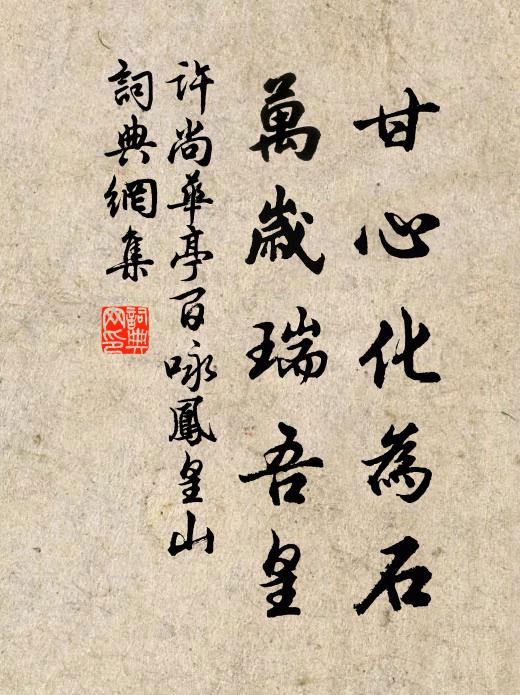 甘心化為石
萬歲瑞吾皇
許尚華亭百咏鳳皇山
詞典網集
詞典網印